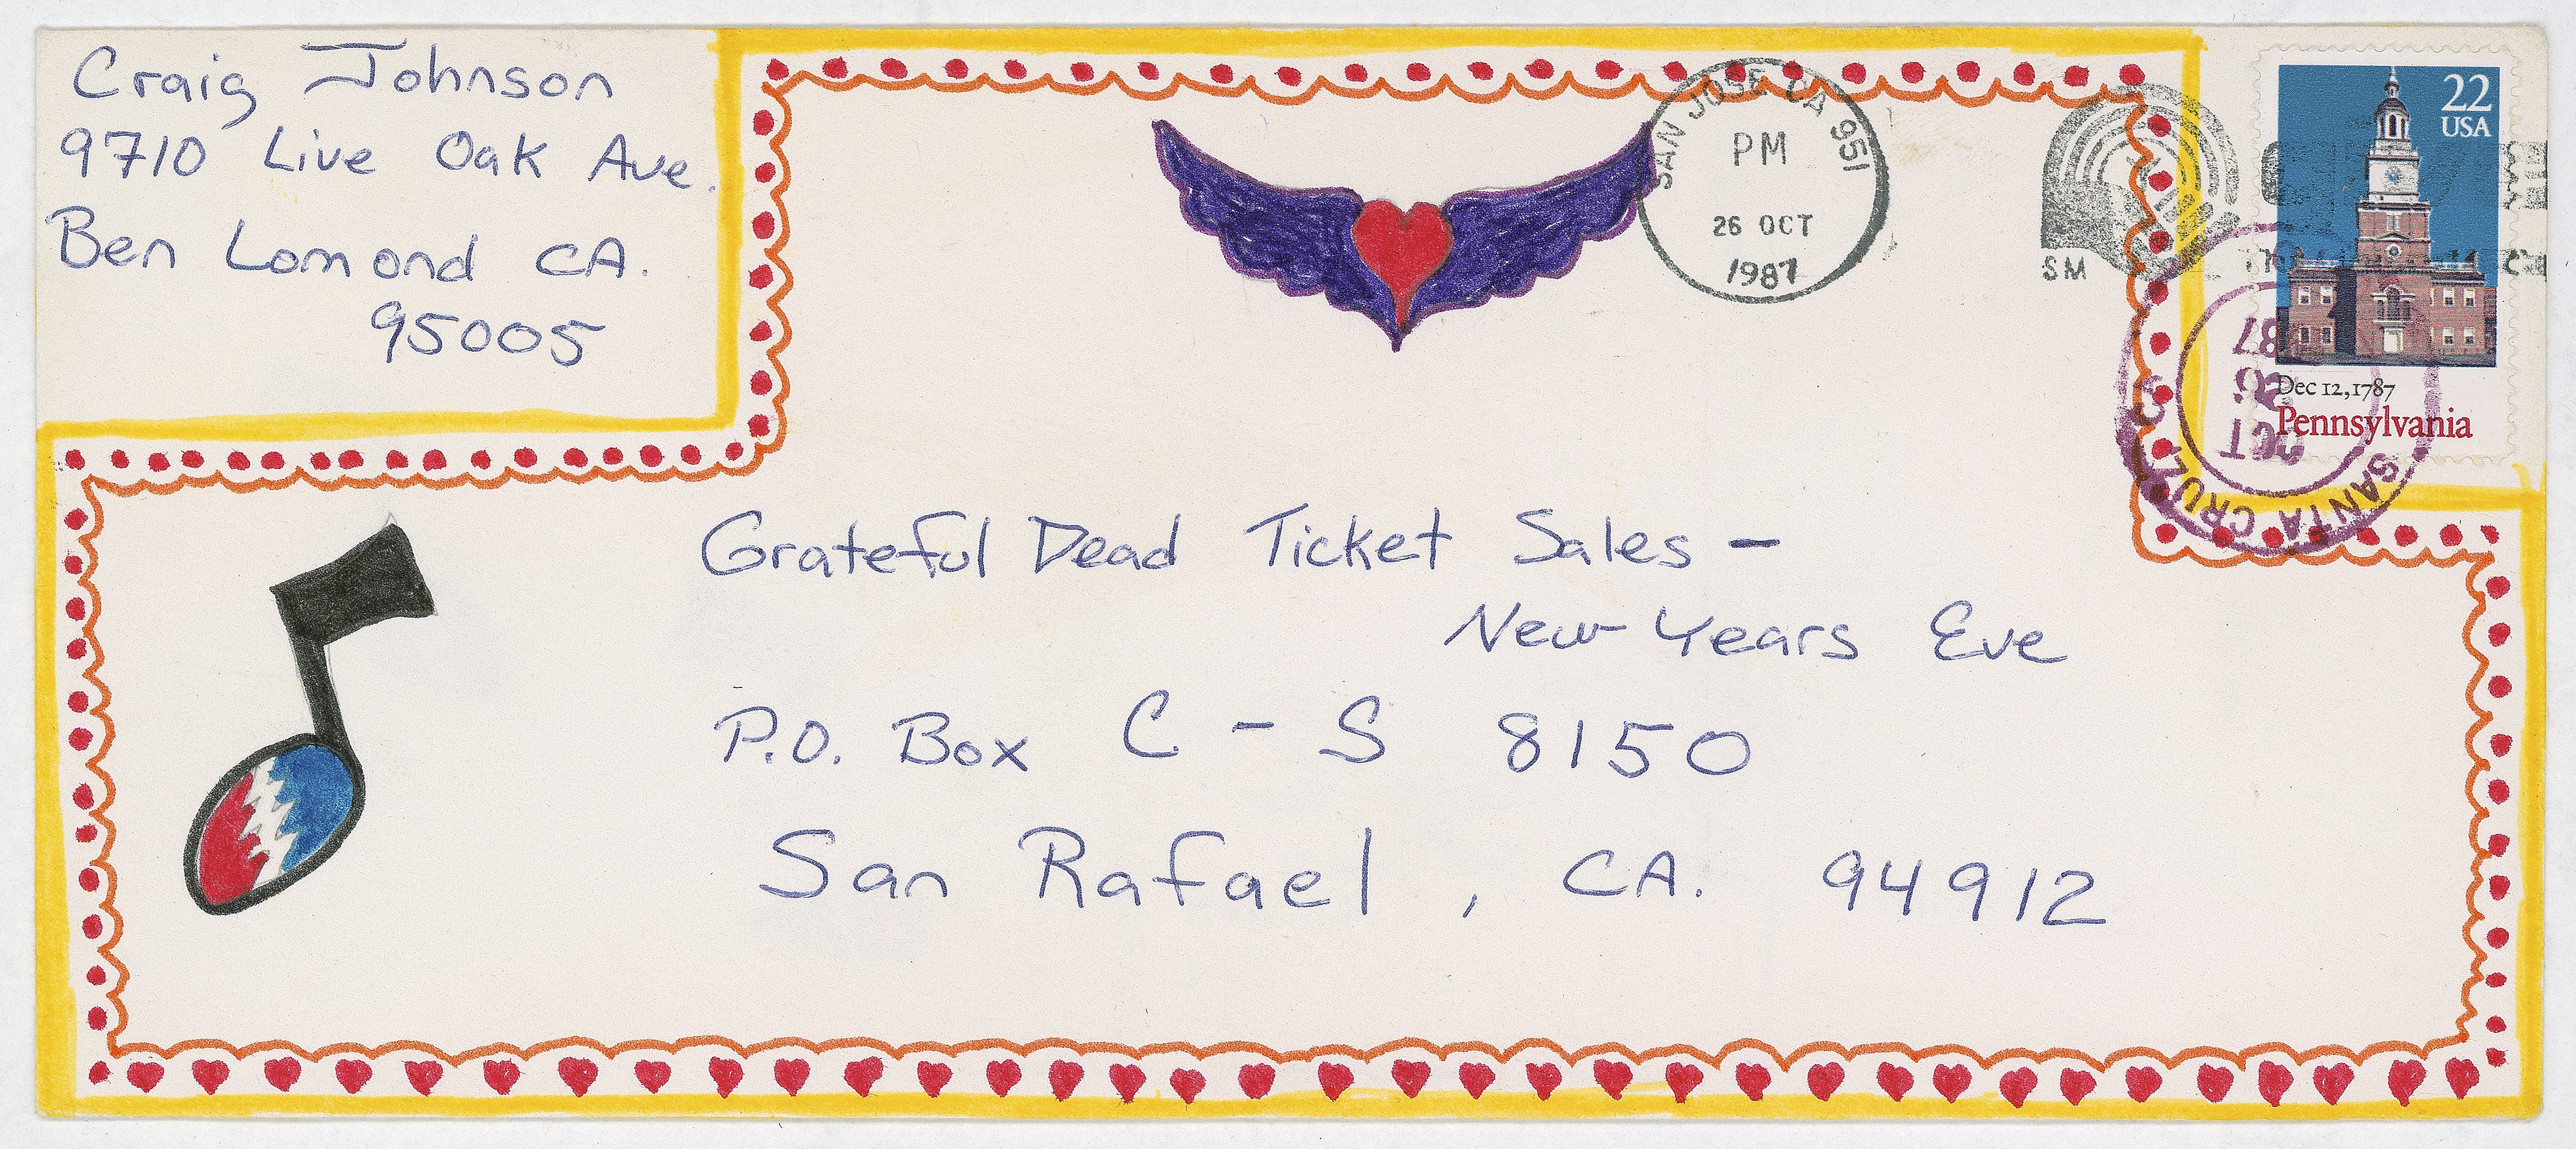 Craig Johnson
9710 Live Oak Ave.
Ben Lomond CA.
95005
SAN JOSE CA 951
PM
26 OCT
1987
SM
22
USA
Dec 12, 1787
Pennsylvania
SANTA CRUZ
OCT
26
87
Grateful Dead Ticket Sales –
New Years Eve
P.O. Box C - S 8150
San Rafael, CA. 94912